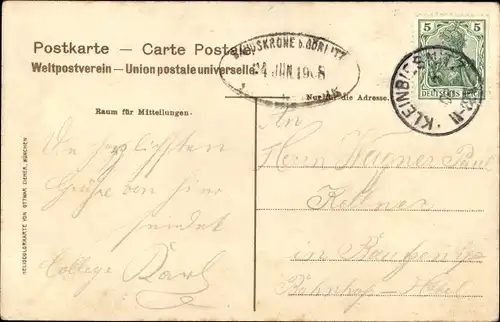 Postkarte — Carte Postale
Weltpostverein — Union postale universelle
LANDSKRONE b. GÖRLITZ
24 JUN 1908
5 5
DEUTSCHES REICH
KLEINBIESNITZ
Nur für die Adresse.
Raum für Mitteilungen.
An
Herrn Wagner Paul
Kellner
in
Bahnhof-Hotel
Die herzlichsten
Grüße von hier
sendet
College Karl
HELIOCOLORKARTE VON OTTMAR ZIEHER, MÜNCHEN